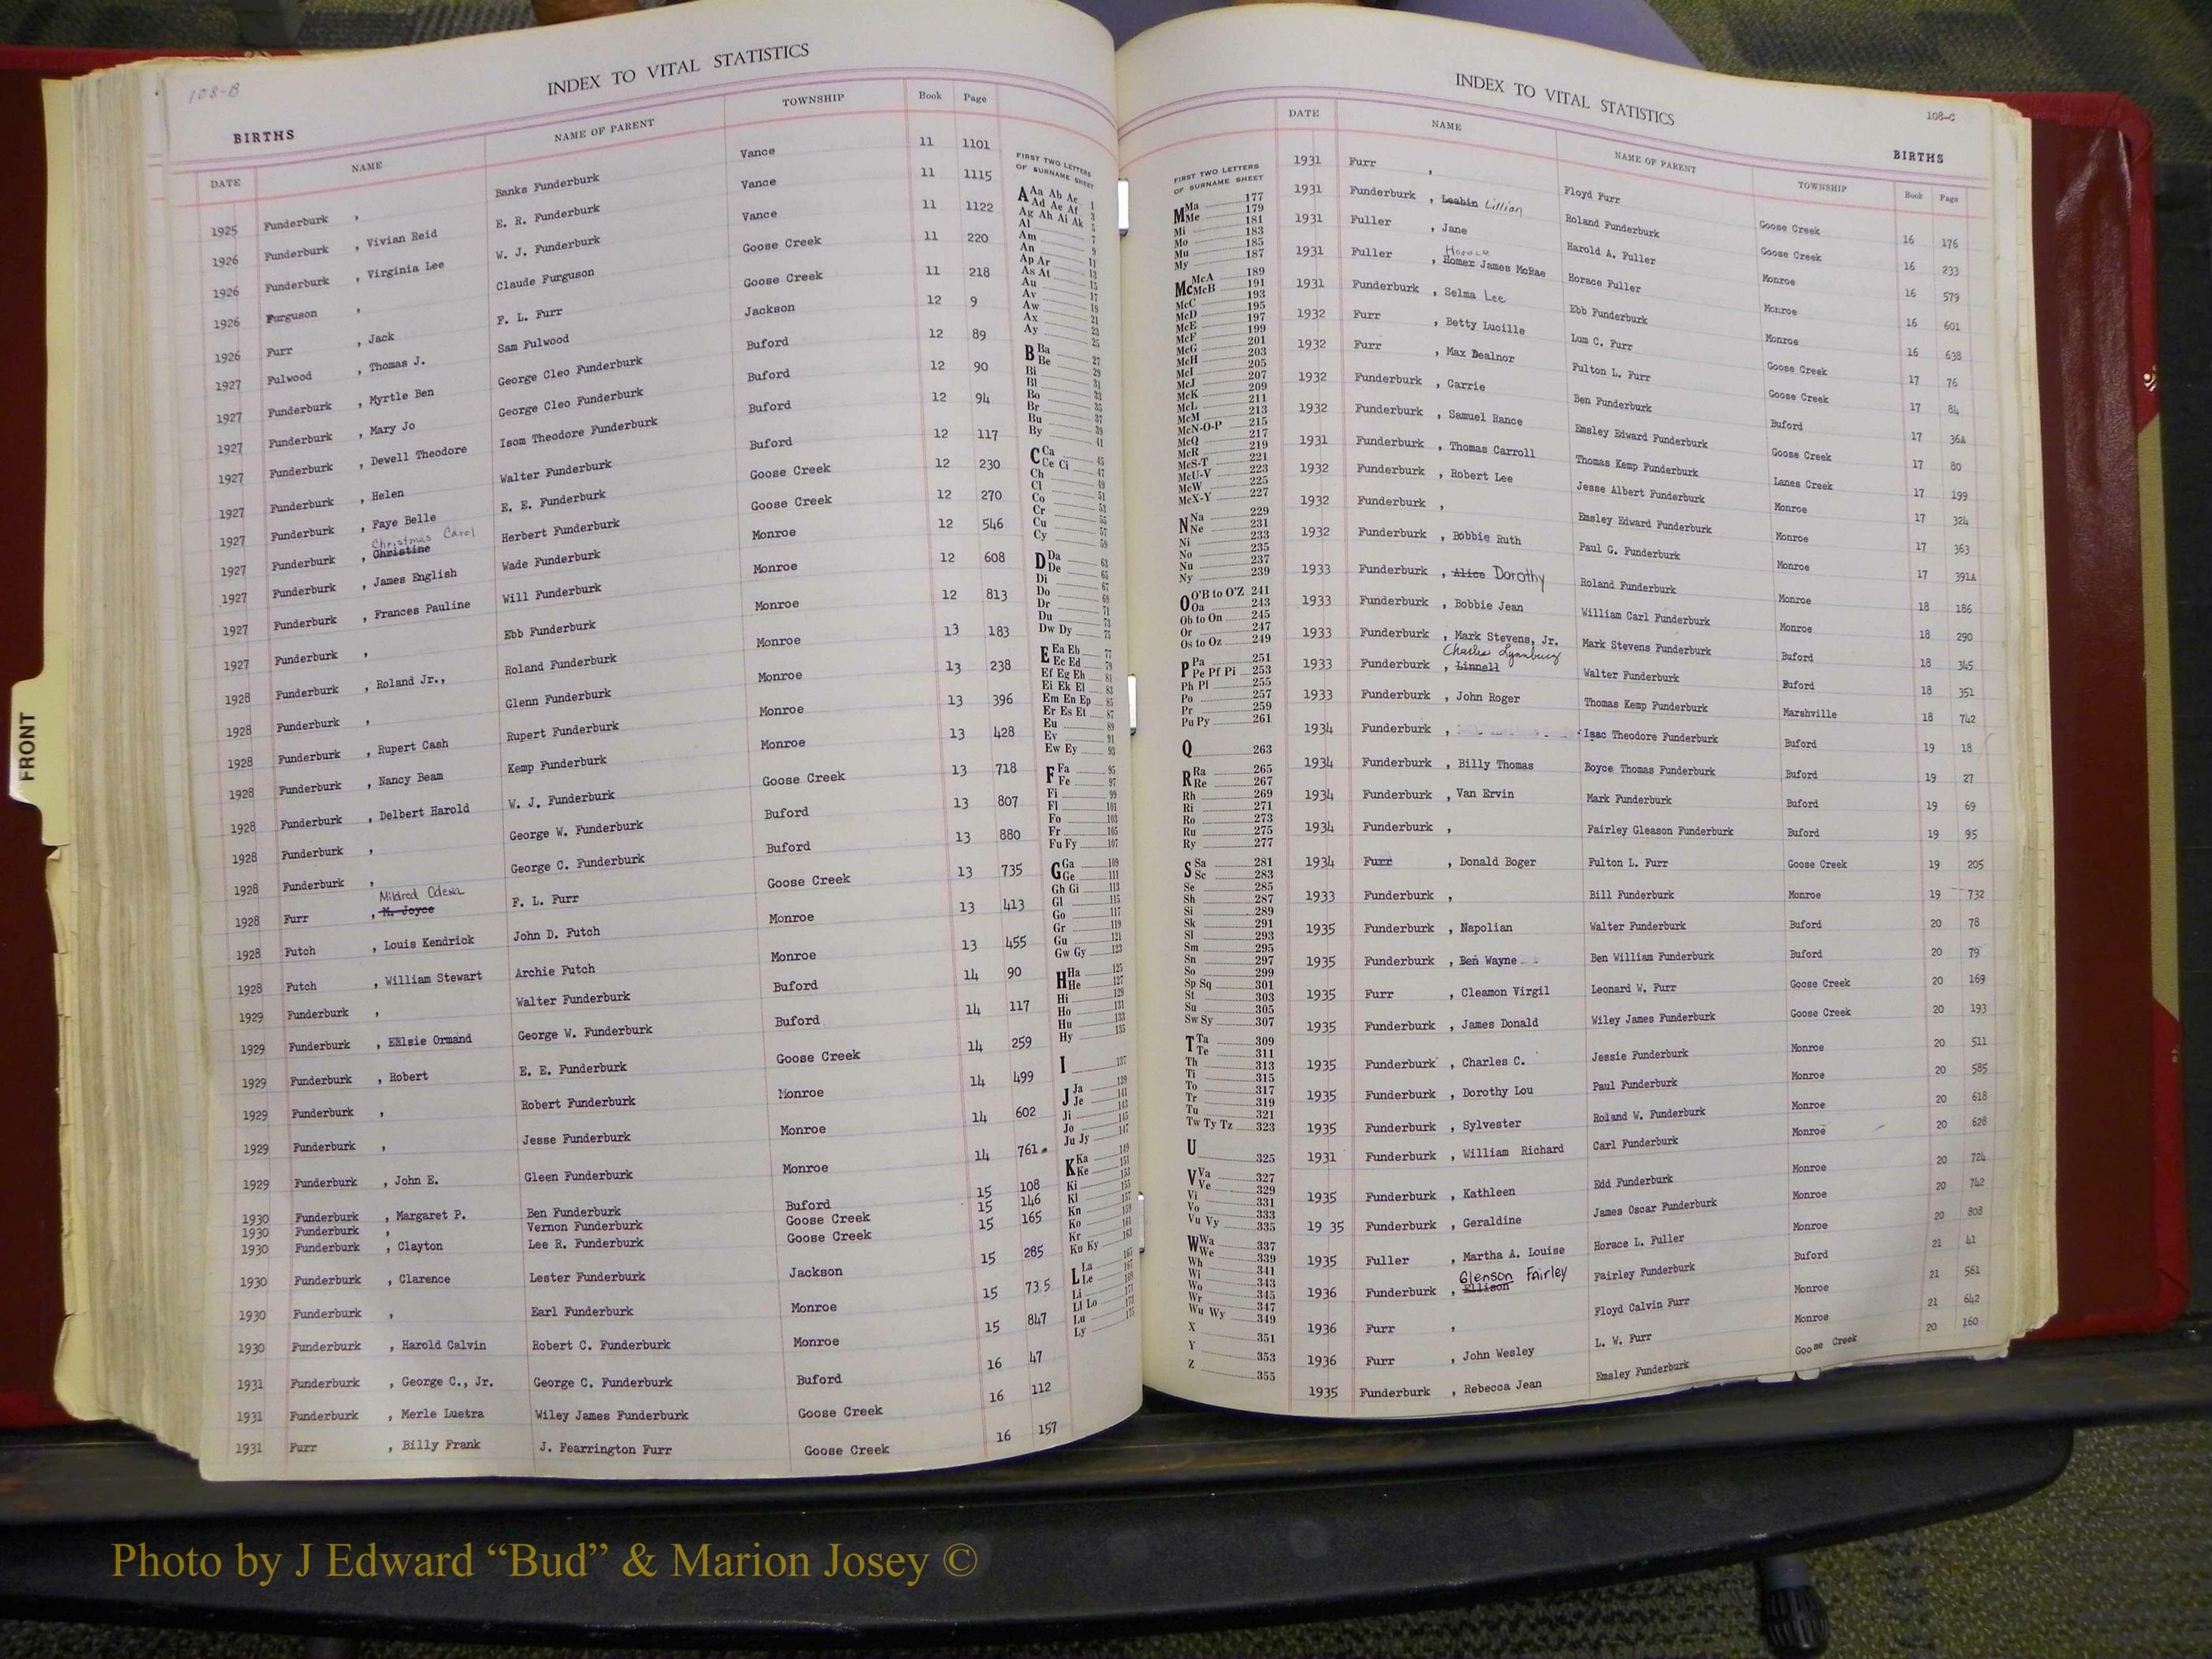 108-B
INDEX TO VITAL STATISTICS
BIRTHS
DATE NAME NAME OF PARENT TOWNSHIP Book Page
1925 Funderburk , Banks Funderburk Vance 11 1101
1926 Funderburk , Vivian Reid E. R. Funderburk Vance 11 1115
1926 Funderburk , Virginia Lee W. J. Funderburk Vance 11 1122
1926 Furguson , Claude Furguson Goose Creek 11 220
1926 Furr , Jack F. L. Furr Goose Creek 11 218
1927 Fulwood , Thomas J. Sam Fulwood Jackson 12 9
1927 Funderburk , Myrtle Ben George Cleo Funderburk Buford 12 89
1927 Funderburk , Mary Jo George Cleo Funderburk Buford 12 90
1927 Funderburk , Dewell Theodore Isom Theodore Funderburk Buford 12 94
1927 Funderburk , Helen Walter Funderburk Buford 12 117
1927 Funderburk , Faye Belle E. E. Funderburk Goose Creek 12 230
Christmas Carol
1927 Funderburk , Christine Herbert Funderburk Goose Creek 12 270
1927 Funderburk , James English Wade Funderburk Monroe 12 546
1927 Funderburk , Frances Pauline Will Funderburk Monroe 12 608
1927 Funderburk , Ebb Funderburk Monroe 12 813
1928 Funderburk , Roland Jr., Roland Funderburk Monroe 13 183
1928 Funderburk , Glenn Funderburk Monroe 13 238
1928 Funderburk , Rupert Cash Rupert Funderburk Monroe 13 396
1928 Funderburk , Nancy Beam Kemp Funderburk Monroe 13 428
1928 Funderburk , Delbert Harold W. J. Funderburk Goose Creek 13 718
1928 Funderburk , George W. Funderburk Buford 13 807
1928 Funderburk , George C. Funderburk Buford 13 880
Mildred Odena
1928 Furr , M. Joyce F. L. Furr Goose Creek 13 735
1928 Futch , Louis Kendrick John D. Futch Monroe 13 413
1928 Futch , William Stewart Archie Futch Monroe 13 455
1929 Funderburk , Walter Funderburk Buford 14 90
1929 Funderburk , Elsie Ormand George W. Funderburk Buford 14 117
1929 Funderburk , Robert E. E. Funderburk Goose Creek 14 259
1929 Funderburk , Robert Funderburk Monroe 14 499
1929 Funderburk , Jesse Funderburk Monroe 14 602
1929 Funderburk , John E. Gleen Funderburk Monroe 14 761
1930 Funderburk , Margaret P. Ben Funderburk Buford 15 108
1930 Funderburk , Vernon Funderburk Goose Creek 15 146
1930 Funderburk , Clayton Lee R. Funderburk Goose Creek 15 165
1930 Funderburk , Clarence Lester Funderburk Jackson 15 285
1930 Funderburk , Earl Funderburk Monroe 15 735
1930 Funderburk , Harold Calvin Robert C. Funderburk Monroe 15 847
1931 Funderburk , George C., Jr. George C. Funderburk Buford 16 47
1931 Funderburk , Merle Luetra Wiley James Funderburk Goose Creek 16 112
1931 Furr , Billy Frank J. Fearrington Furr Goose Creek 16 157
FIRST TWO LETTERS
OF SURNAME SHEET
A Aa Ab Ac 1
Ad Ae Af 3
Ag Ah Ai Ak 5
Al 7
Am 9
An 11
Ap Ar 13
As At 15
Au 17
Av 19
Aw 21
Ax 23
Ay 25
B Ba 27
Be 29
Bi 31
Bl 33
Bo 35
Br 37
Bu 39
By 41
C Ca 45
Ce Ci 47
Ch 49
Cl 51
Co 53
Cr 55
Cu 57
Cy 59
D Da 63
De 65
Di 67
Do 69
Dr 71
Du 73
Dw Dy 75
E Ea Eb 77
Ec Ed 79
Ef Eg Eh 81
Ei Ek El 83
Em En Ep 85
Er Es Et 87
Eu 89
Ev 91
Ew Ey 93
F Fa 95
Fe 97
Fi 99
Fl 101
Fo 103
Fr 105
Fu Fy 107
G Ga 109
Ge 111
Gh Gi 113
Gl 115
Go 117
Gr 119
Gu 121
Gw Gy 123
H Ha 125
He 127
Hi 129
Ho 131
Hu 133
Hy 135
I 137
J Ja 139
Je 141
Ji 143
Jo 145
Ju Jy 147
K Ka 149
Ke 151
Ki 153
Kl 157
Kn 159
Ko 161
Kr 163
Ku Ky
L La 165
Le 167
Li 169
Ll Lo 171
Lu 173
Ly 175
INDEX TO VITAL STATISTICS
108-C
BIRTHS
FIRST TWO LETTERS
OF SURNAME SHEET
M Ma 177
Me 179
Mi 181
Mo 183
Mu 185
My 187
Mc McA 189
McB 191
McC 193
McD 195
McE 197
McF 199
McG 201
McH 203
McI 205
McJ 207
McK 209
McL 211
McM 213
McN-O-P 215
McQ 217
McR 219
McS-T 221
McU-V 223
McW 225
McX-Y 227
N Na 229
Ne 231
Ni 233
No 235
Nu 237
Ny 239
O O'B to O'Z 241
Oa 243
Ob to On 245
Or 247
Os to Oz 249
P Pa 251
Pe Pf Pi 253
Ph Pl 255
Po 257
Pr 259
Pu Py 261
Q 263
R Ra 265
Re 267
Rh 269
Ri 271
Ro 273
Ru 275
Ry 277
S Sa 281
Sc 283
Se 285
Sh 287
Si 289
Sk 291
Sl 293
Sm 295
Sn 297
So 299
Sp Sq 301
St 303
Su 305
Sw Sy 307
T Ta 309
Te 311
Th 313
Ti 315
To 317
Tr 319
Tu 321
Tw Ty Tz 323
U 325
V Va 327
Ve 329
Vi 331
Vo 333
Vu Vy 335
W Wa 337
We 339
Wh 341
Wi 343
Wo 345
Wr 347
Wu Wy 349
X 351
Y 353
Z 355
DATE NAME NAME OF PARENT TOWNSHIP Book Page
1931 Furr , Floyd Furr Goose Creek 16 176
1931 Funderburk , Leabin Lillian Roland Funderburk Goose Creek 16 233
1931 Fuller , Jane Harold A. Fuller Monroe 16 579
Horace
1931 Fuller , Homer James McRae Horace Fuller Monroe 16 601
1931 Funderburk , Selma Lee Ebb Funderburk Monroe 16 638
1932 Furr , Betty Lucille Lum C. Furr Goose Creek 17 76
1932 Furr , Max Dealnor Fulton L. Furr Goose Creek 17 84
1932 Funderburk , Carrie Ben Funderburk Buford 17 36A
1932 Funderburk , Samuel Rance Emsley Edward Funderburk Goose Creek 17 80
1931 Funderburk , Thomas Carroll Thomas Kemp Funderburk Lanes Creek 17 199
1932 Funderburk , Robert Lee Jesse Albert Funderburk Monroe 17 324
1932 Funderburk , Emsley Edward Funderburk Monroe 17 363
1932 Funderburk , Bobbie Ruth Paul G. Funderburk Monroe 17 391A
1933 Funderburk , Alice Dorothy Roland Funderburk Monroe 18 186
1933 Funderburk , Bobbie Jean William Carl Funderburk Monroe 18 290
1933 Funderburk , Mark Stevens, Jr. Mark Stevens Funderburk Buford 18 345
Charles Lynnburg
1933 Funderburk , Linnell Walter Funderburk Buford 18 351
1933 Funderburk , John Roger Thomas Kemp Funderburk Marshville 18 742
1934 Funderburk , Isac Theodore Funderburk Buford 19 18
1934 Funderburk , Billy Thomas Boyce Thomas Funderburk Buford 19 27
1934 Funderburk , Van Ervin Mark Funderburk Buford 19 69
1934 Funderburk , Fairley Gleason Funderburk Buford 19 95
1934 Furr , Donald Boger Fulton L. Furr Goose Creek 19 205
1933 Funderburk , Bill Funderburk Monroe 19 732
1935 Funderburk , Napolian Walter Funderburk Buford 20 78
1935 Funderburk , Ben Wayne Ben William Funderburk Buford 20 79
1935 Furr , Cleamon Virgil Leonard W. Furr Goose Creek 20 169
1935 Funderburk , James Donald Wiley James Funderburk Goose Creek 20 193
1935 Funderburk , Charles C. Jessie Funderburk Monroe 20 511
1935 Funderburk , Dorothy Lou Paul Funderburk Monroe 20 585
1935 Funderburk , Sylvester Roland W. Funderburk Monroe 20 618
1931 Funderburk , William Richard Carl Funderburk Monroe 20 628
1935 Funderburk , Kathleen Edd Funderburk Monroe 20 724
19 35 Funderburk , Geraldine James Oscar Funderburk Monroe 20 742
1935 Fuller , Martha A. Louise Horace L. Fuller Monroe 20 808
Glenson Fairley
1936 Funderburk , Ellison Fairley Funderburk Buford 21 41
1936 Furr , Floyd Calvin Furr Monroe 21 561
1936 Furr , John Wesley L. W. Furr Monroe 21 642
1935 Funderburk , Rebecca Jean Emsley Funderburk Goose Creek 20 160
FRONT
Photo by J Edward “Bud” & Marion Josey ©